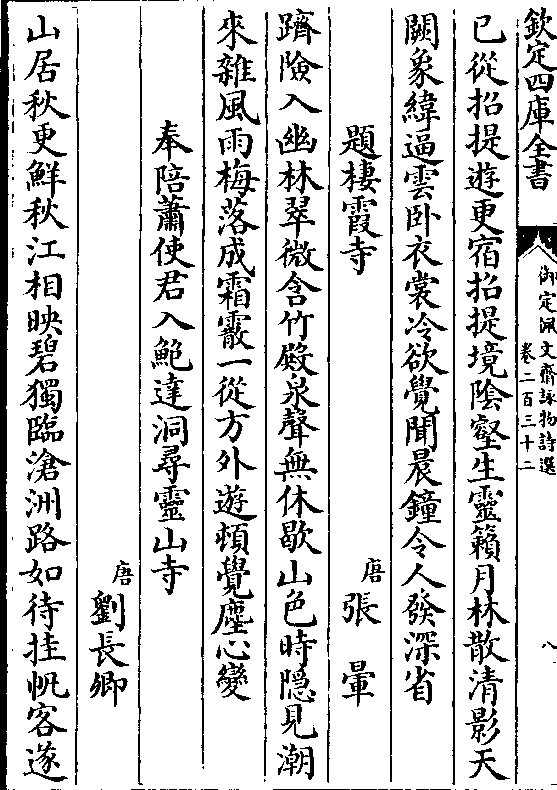 欽定四庫全書
御定佩文齋詠物詩選
卷二百三十二
八
已從招提遊更宿招提境陰壑生靈籟月林散清影天
闕象緯逼雲卧衣裳冷欲覺聞晨鐘令人發深省
題棲霞寺
唐張暈
躋險入幽林翠微含竹殿泉聲無休歇山色時隱見潮
來雜風雨梅落成霜霰一從方外遊頓覺塵心變
奉陪蕭使君入鮑達洞尋靈山寺
唐劉長卿
山居秋更鮮秋江相映碧獨臨滄洲路如待挂帆客遂